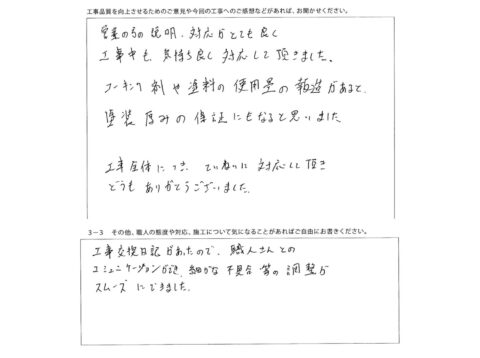 工事品質を向上させるためのご意見や今回の工事へのご感想などがあれば、お聞かせください。
営業の方の説明、対応がとても良く
工事中も、気持ち良く対応して頂きました。
コーキング剤や塗料の使用量の報告があると、
塗装厚みの保証にもなると思いました
工事全体につき、ていねいに対応して頂き
どうもありがとうございました。
3-3 その他、職人の態度や対応、施工について気になることがあればご自由にお書きください。
工事交換日記があったので、職人さんとの
コミュニケーションができ、細かな不具合等の調整が
スムーズにできました。